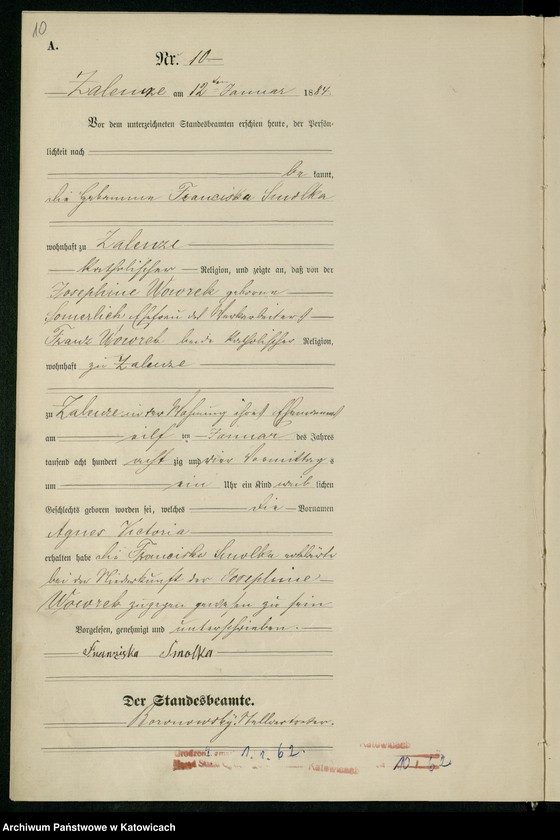 10
A.
Nr. 10
Zalenze am 12ten Januar 1884.
Vor dem unterzeichneten Standesbeamten erschien heute, der Persön-
lichkeit nach
be kannt,
die Hebamme Franciska Smolka
wohnhaft zu Zalenze
katholischer Religion, und zeigte an, daß von der
Josephine Wowrek geborne
Somerlich Ehefrau des Werkarbeiters
Franz Wowrek beide katholischer Religion,
wohnhaft zu Zalenze
zu Zalenze in der Wohnung ihres Ehemannes
am eilf ten Januar des Jahres
tausend acht hundert acht zig und vier Vormittags
um ein Uhr ein Kind weib lichen
Geschlechts geboren worden sei, welches die Vornamen
Agnes Victoria
erhalten habe die Franciska Smolka erklärte
bei der Niederkunft der Josephine
Wowrek zugegen gewesen zu sein
Vorgelesen, genehmigt und unterschrieben.
Franziska Smolka
Der Standesbeamte.
Stellvertreter.
1. 1. 62.
Katowicach
Archiwum Państwowe w Katowicach